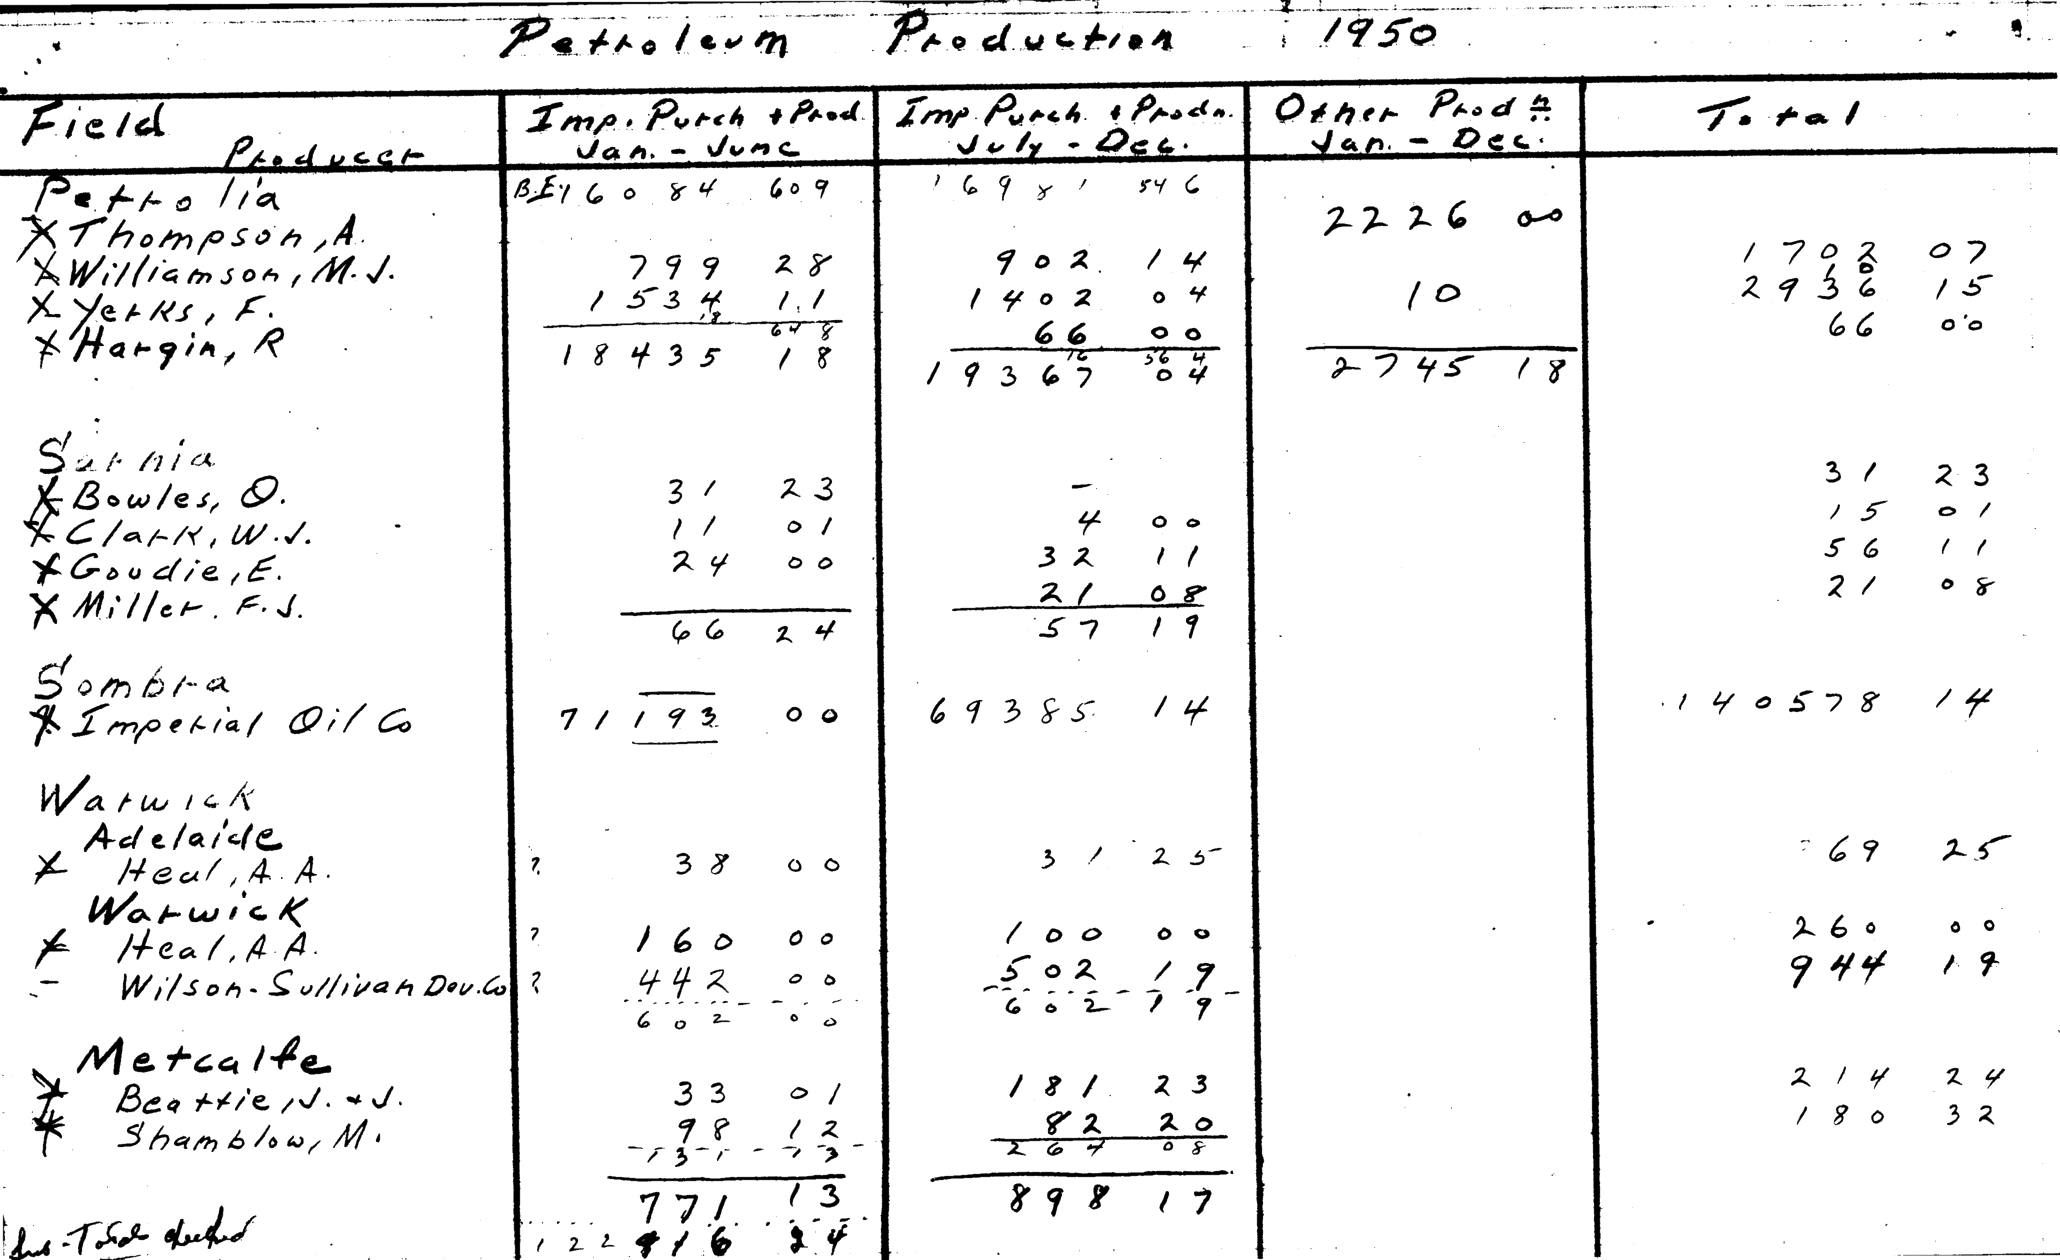 Petroleum Production 1950
Field Producer Imp. Purch + Prod. Jan. - June Imp. Purch. + Prodn. July - Dec. Other Prod n Jan. - Dec. Total
Petrolia B.F. 16084 609 16981 546
X Thompson, A. 2226 00
X Williamson, M.J. 799 28 902 14 1702 07
X Yerks, F. 1534 11 1402 04 10 2936 15
X Hargin, R 66 00 66 00
18435 18 19367 04 2745 18
Sarnia
X Bowles, O. 31 23 - 31 23
X Clark, W.J. 11 01 4 00 15 01
X Goudie, E. 24 00 32 11 56 11
X Miller. F.J. 21 08 21 08
66 24 57 19
Sombra
X Imperial Oil Co 71193 00 69385 14 140578 14
Warwick
Adelaide
X Heal, A.A. ? 38 00 31 25 69 25
Warwick
X Heal, A.A. ? 160 00 100 00 260 00
- Wilson-Sullivan Dev. Co ? 442 00 502 19 944 19
602 00 602 19
Metcalfe
X Beattie, J. + J. 33 01 181 23 214 24
X Shamblow, M. 98 12 82 20 180 32
131 13 264 08
771 13 898 17
Sub-Totals checked 122